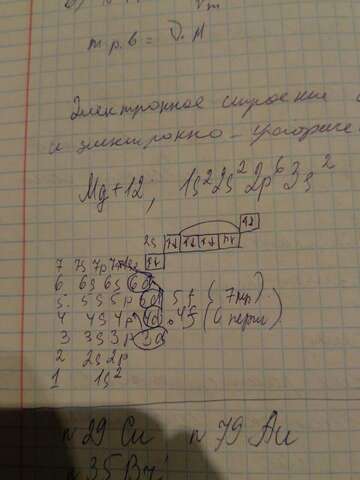 m р.в = D. M
Электронное строение
и электронно-графиче
Mg +12; 1s² 2s² 2p⁶ 3s²
2s
7 7s 7p
6 6s 6s 6d
5. 5s 5p 5d 5f (7 пер).
4 4s 4p 4d. 4f (6 пери).
3 3s 3p 3d
2 2s 2p
1 1s²
n 29 Cu n 79 Au
n 35 Br